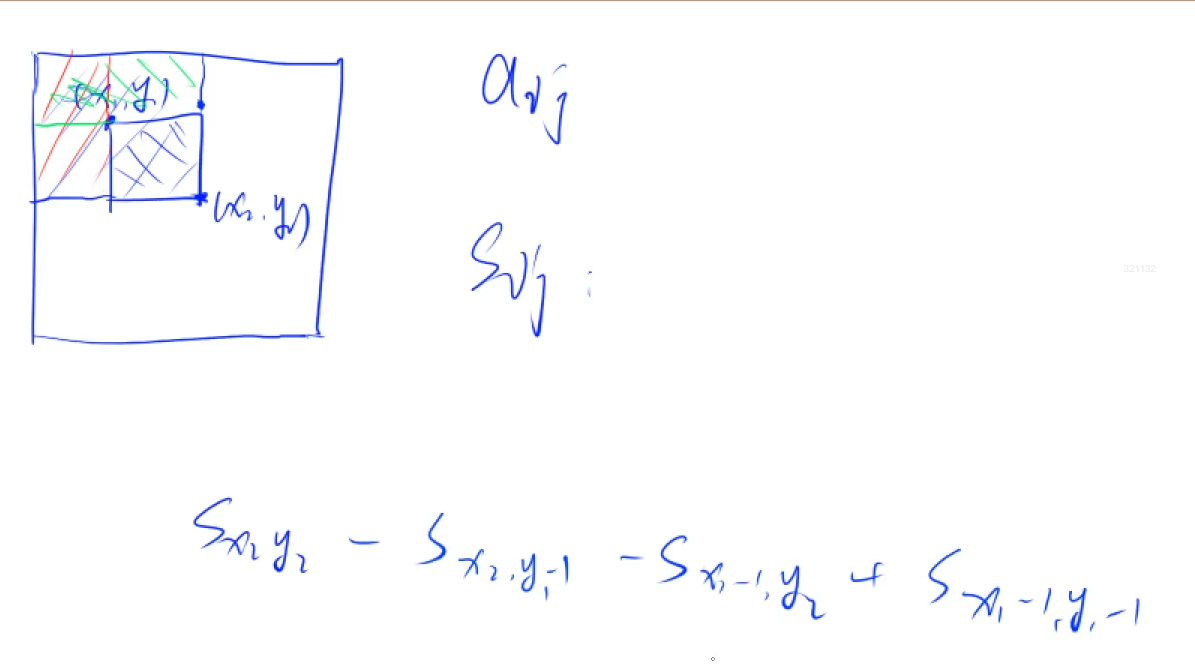 (x₁, y₁)
aᵢⱼ
(x₂, y₂)
Sᵢⱼ :
321132
Sx₂y₂ - Sx₂,y₁-1 - Sx₁-1,y₂ + Sx₁-1,y₁-1